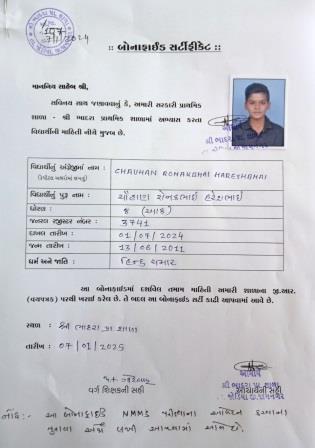 7/1/2024
:: બોનાફાઈડ સર્ટીફીકેટ ::
માનનિય સાહેબ શ્રી,
સવિનય સાથ જણાવવાનું કે, અમારી સરકારી પ્રાથમિક
શાળા - શ્રી ભાદરા પ્રાથમિક શાળામાં અભ્યાસ કરતા
વિદ્યાર્થીની માહિતી નીચે મુજબ છે.
વિદ્યાર્થીનું અંગ્રેજીમાં નામ : CHAUHAN RONAKBHAI HARESHBHAI
વિદ્યાર્થીનું પુરૂ નામ : ચૌહાણ રોનકભાઈ હરેશભાઈ
ધોરણ : ૮ (આઠ)
જનરલ રજીસ્ટર નંબર : 3741
દાખલ તારીખ : 01/07/2024
જન્મ તારીખ : 13/06/2011
ધર્મ અને જાતિ : હિન્દુ ચમાર
આ બોનાફાઈડમાં દર્શાવેલ તમામ માહિતી અમારી શાળાના જી.આર.
(વયપત્રક) પરથી ખરાઈ કરેલ છે. તે બદલ આ બોનાફાઈડ સર્ટી કાઢી આપવામાં આવે છે.
સ્થળ : શ્રી ભાદરા પ્રા શાળા
તારીખ : 07/01/2025
વર્ગ શિક્ષકની સહી
આચાર્યની સહી
નોંધ:- આ બોનાફાઈડ NMMS પરીક્ષાના